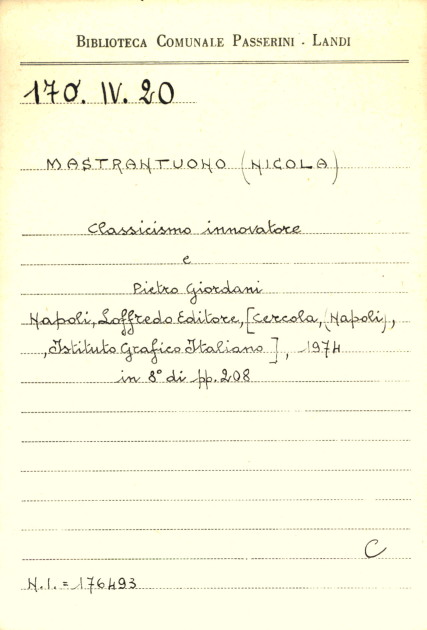 BIBLIOTECA COMUNALE PASSERINI - LANDI
170. IV. 20
MASTRANTUONO (NICOLA)
Classicismo innovatore
e
Pietro Giordani
Napoli, Loffredo Editore, [Cercola, (Napoli),
, Istituto Grafico Italiano], 1974
in 8° di pp. 208
C
N.I. = 176493